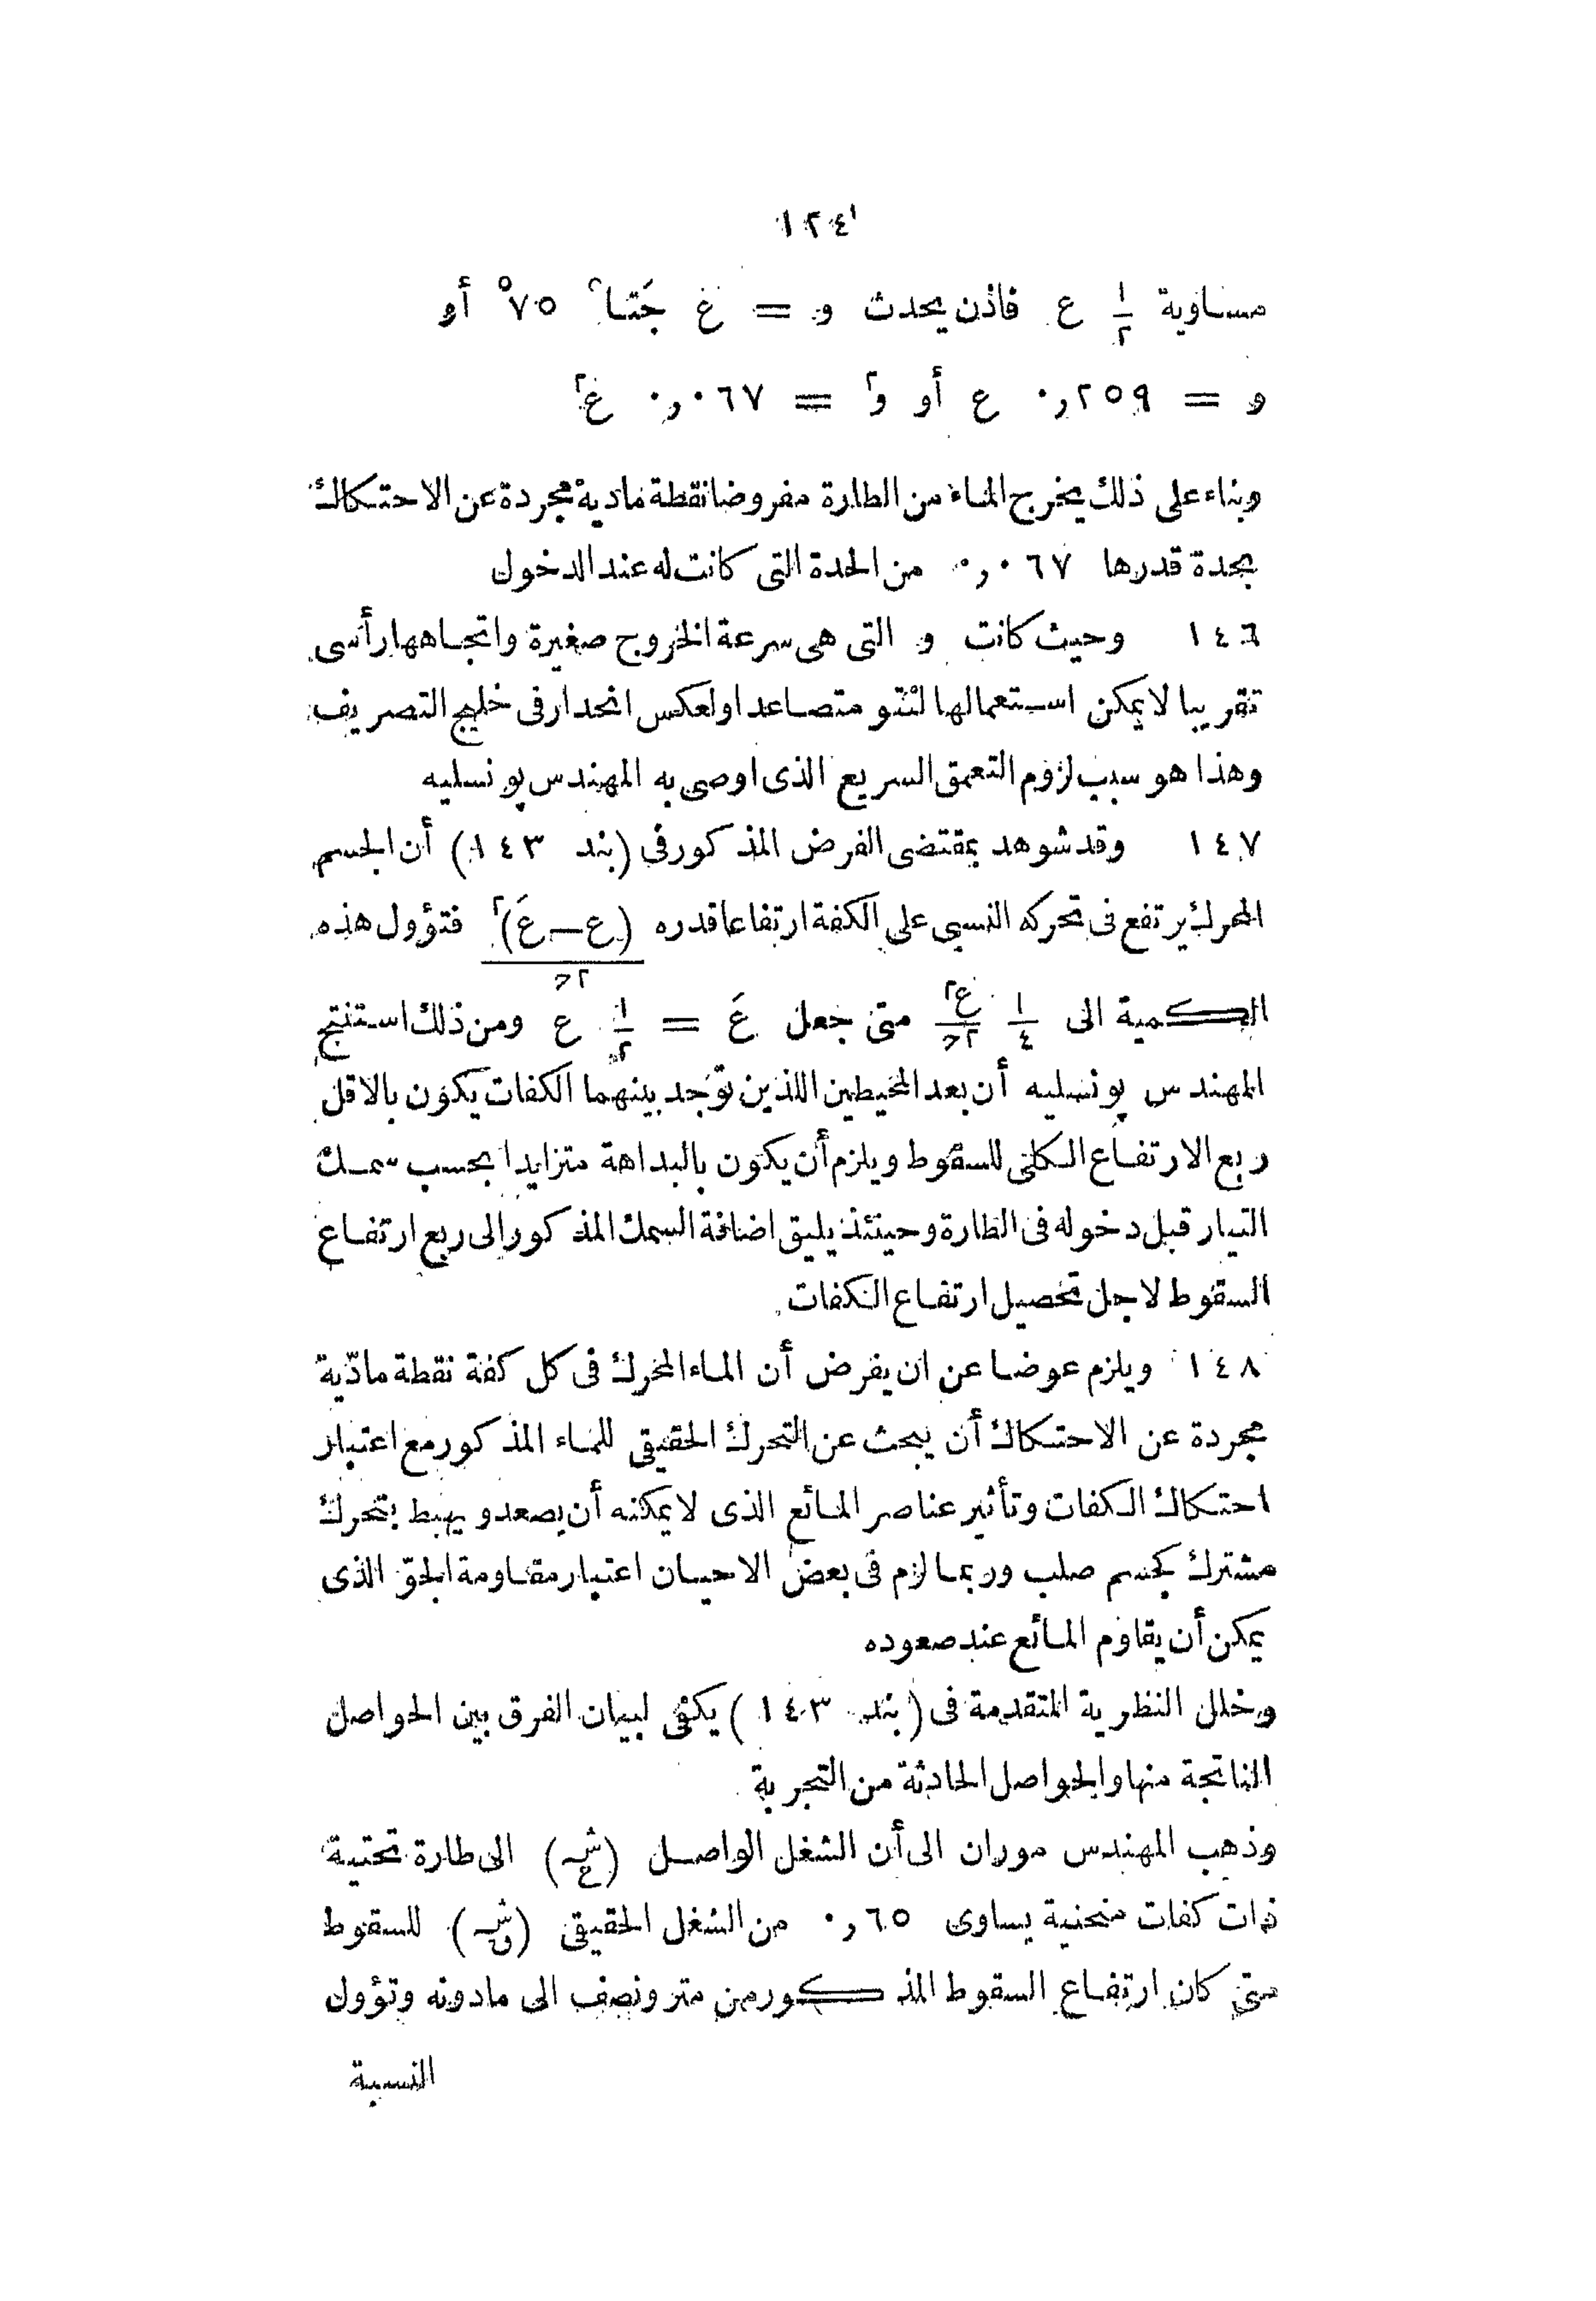 ١٢٤
مساوية ١/٢ ع فاذن يحدث و = ع جَتا ٧٥° أو
و = ٠,٢٥٩ ع أو و٢ = ٠,٠٦٧ ع٢
وبناء على ذلك يخرج الماء من الطارة مفروضا نقطة مادية مجردة عن الاحتكاك
بحدة قدرها ٠,٠٦٧ من الحدة التى كانت له عند الدخول
١٤٦ وحيث كانت و التى هى سرعة الخروج صغيرة واتجاهها رأسى
تقريبا لا يمكن استعمالها لنتو متصاعد اولعكس انحدار فى خليج التصريف
وهذا هو سبب لزوم التعمق السريع الذى اوصى به المهندس پونسليه
١٤٧ وقد شوهد بمقتضى الفرض المذكور فى (بند ١٤٣) أن الجسم
المحرك يرتفع فى تحركه النسبى على الكفة ارتفاعا قدره (ع−عَ)٢/٢ح فتؤول هذه
الكمية الى ١/٤ ع٢/٢ح متى جعل عَ = ١/٢ ع ومن ذلك استنتج
المهندس پونسليه أن بعد المحيطين اللذين توجد بينهما الكفات يكون بالاقل
ربع الارتفاع الكلى للسقوط ويلزم أن يكون بالبداهة متزايدا بحسب سمك
التيار قبل دخوله فى الطارة وحينئذ يليق اضافة السمك المذكور الى ربع ارتفاع
السقوط لاجل تحصيل ارتفاع الكفات
١٤٨ ويلزم عوضا عن ان يفرض أن الماء المحرك فى كل كفة نقطة مادّية
مجردة عن الاحتكاك أن يبحث عن التحرك الحقيقى للماء المذكور مع اعتبار
احتكاك الكفات وتأثير عناصر المائع الذى لا يمكنه أن يصعد ويهبط بتحرك
مشترك كجسم صلب وربما لزم فى بعض الاحيان اعتبار مقاومة الجوّ الذى
يمكن أن يقاوم المائع عند صعوده
وخلل النظرية المتقدمة فى (بند ١٤٣) يكفى لبيان الفرق بين الحواصل
الناتجة منها والحواصل الحادثة من التجربة
وذهب المهندس موران الى أن الشغل الواصل (شع) الى طارة تحتية
ذات كفات منحنية يساوى ٠,٦٥ من الشغل الحقيقى (شق) للسقوط
متى كان ارتفاع السقوط المذكور من متر ونصف الى مادونه وتؤول
النسبة